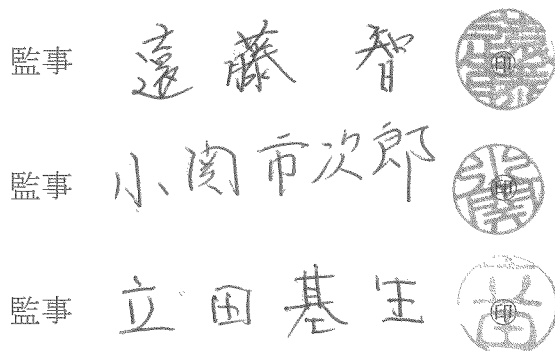 監事 遠藤 智 ㊞
監事 小関市次郎 ㊞
監事 立田基生 ㊞